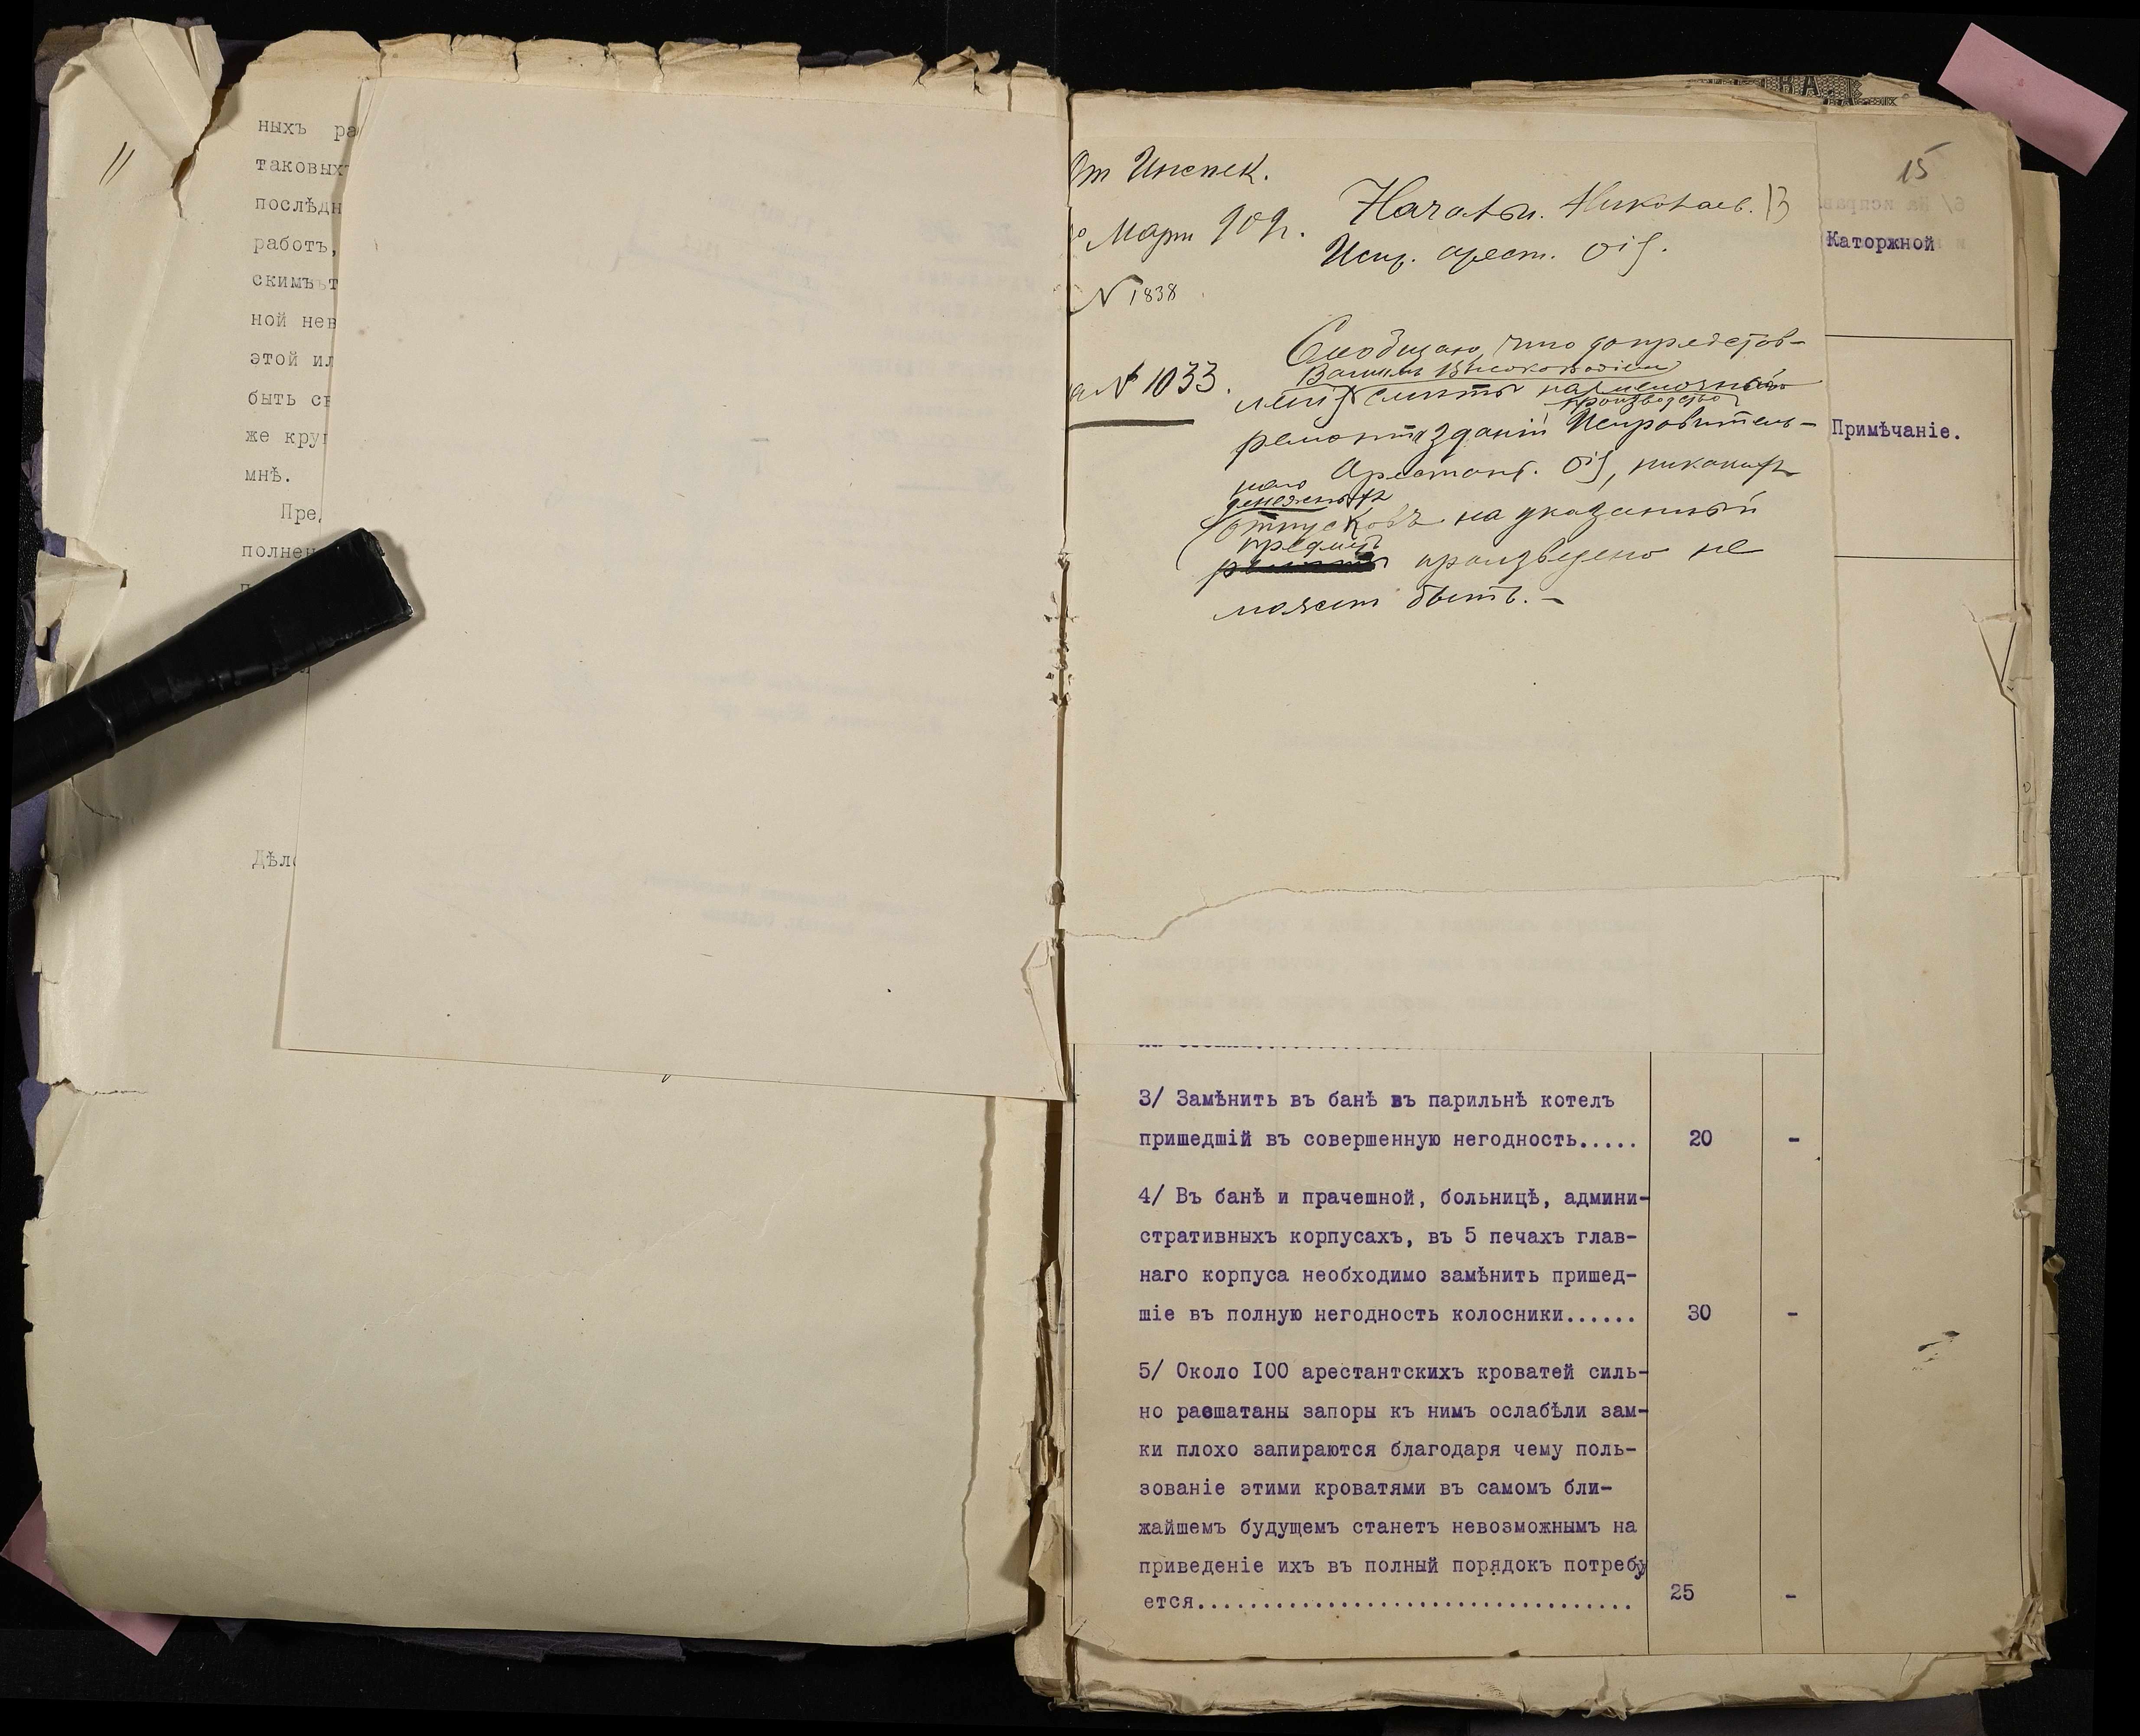 11
ныхъ ра
таковыхъ
послѣдн
работъ,
скимъ т
ной нев
этой ил
быть св
же круг
мнѣ.
Пред
полнен
Дѣло
15
От Инспек.
Мартъ 909г.
N 1838
на № 1033.
Начальн. Николаев. 13
Испр. арест. отд.
Сообщаю, что до представ-
Вашимъ Высокоблагородіем
ленія смѣты на мелочный
производство
ремонта зданій Исправитель-
наго Арестант. отд, никакихъ
денежныхъ
отпусковъ на указанный
предметъ
произведено не
может быть. –
Каторжной
Примѣчаніе.
3/ Замѣнить въ банѣ въ парильнѣ котелъ
пришедшій въ совершенную негодность..... 20 -
4/ Въ банѣ и прачешной, больницѣ, админи-
стративныхъ корпусахъ, въ 5 печахъ глав-
наго корпуса необходимо замѣнить пришед-
шіе въ полную негодность колосники...... 30 -
5/ Около I00 арестантскихъ кроватей силь-
но расшатаны запоры къ нимъ ослабѣли зам-
ки плохо запираются благодаря чему поль-
зованіе этими кроватями въ самомъ бли-
жайшемъ будущемъ станетъ невозможнымъ на
приведеніе ихъ въ полный порядокъ потребу
ется................................... 25 -